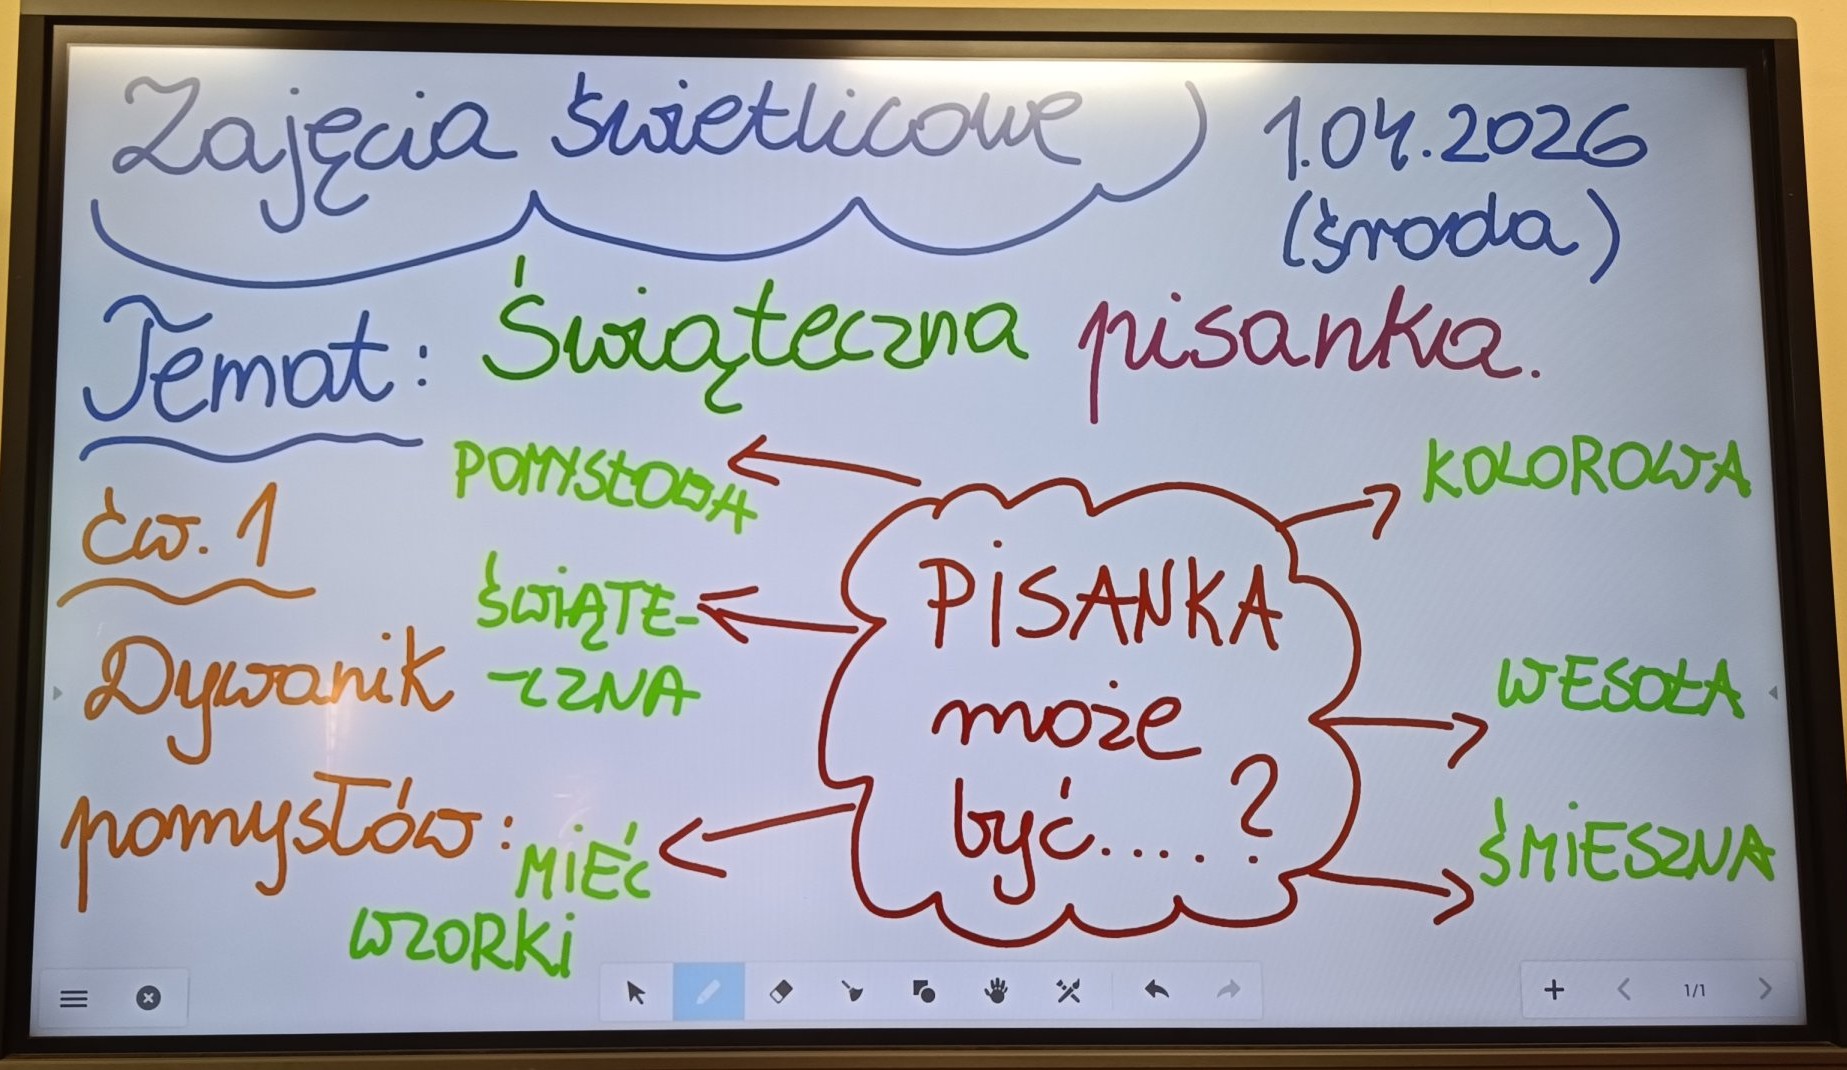 Zajęcia świetlicowe
1.04.2026
(środa)
Temat: Świąteczna pisanka.
ćw. 1
Dywanik
pomysłów:
POMYSŁOWA
ŚWIĄTE-
-CZNA
MIEĆ
WZORKI
PISANKA
może
być.....?
KOLOROWA
WESOŁA
ŚMIESZNA
1/1